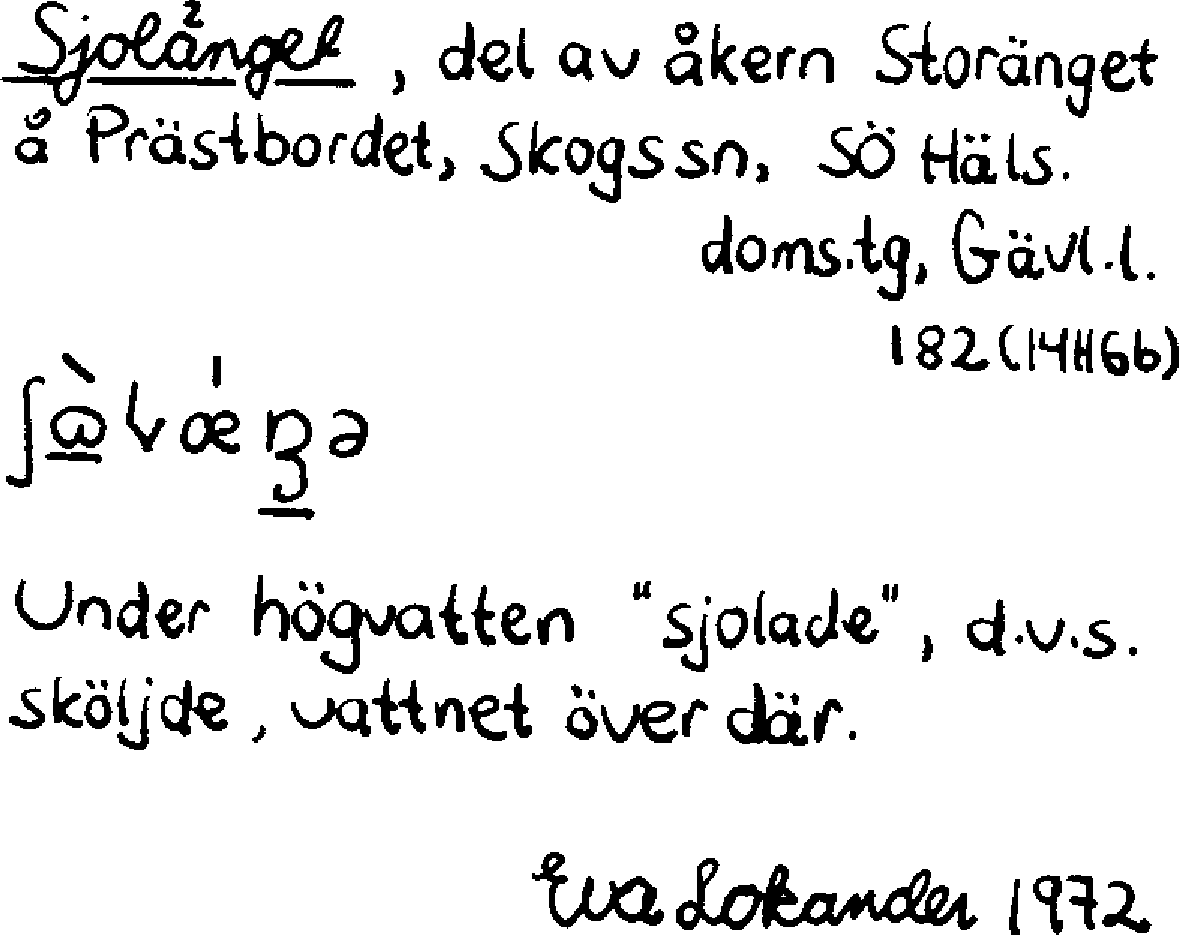 Sjolänget, del av åkern Storänget
å Prästbordet, Skogs sn, SÖ Häls.
doms.tg, Gävl.l.
182 (14H6b)
Under högvatten "sjolade", d.v.s.
sköljde, vattnet över där.
Eva Lokander 1972